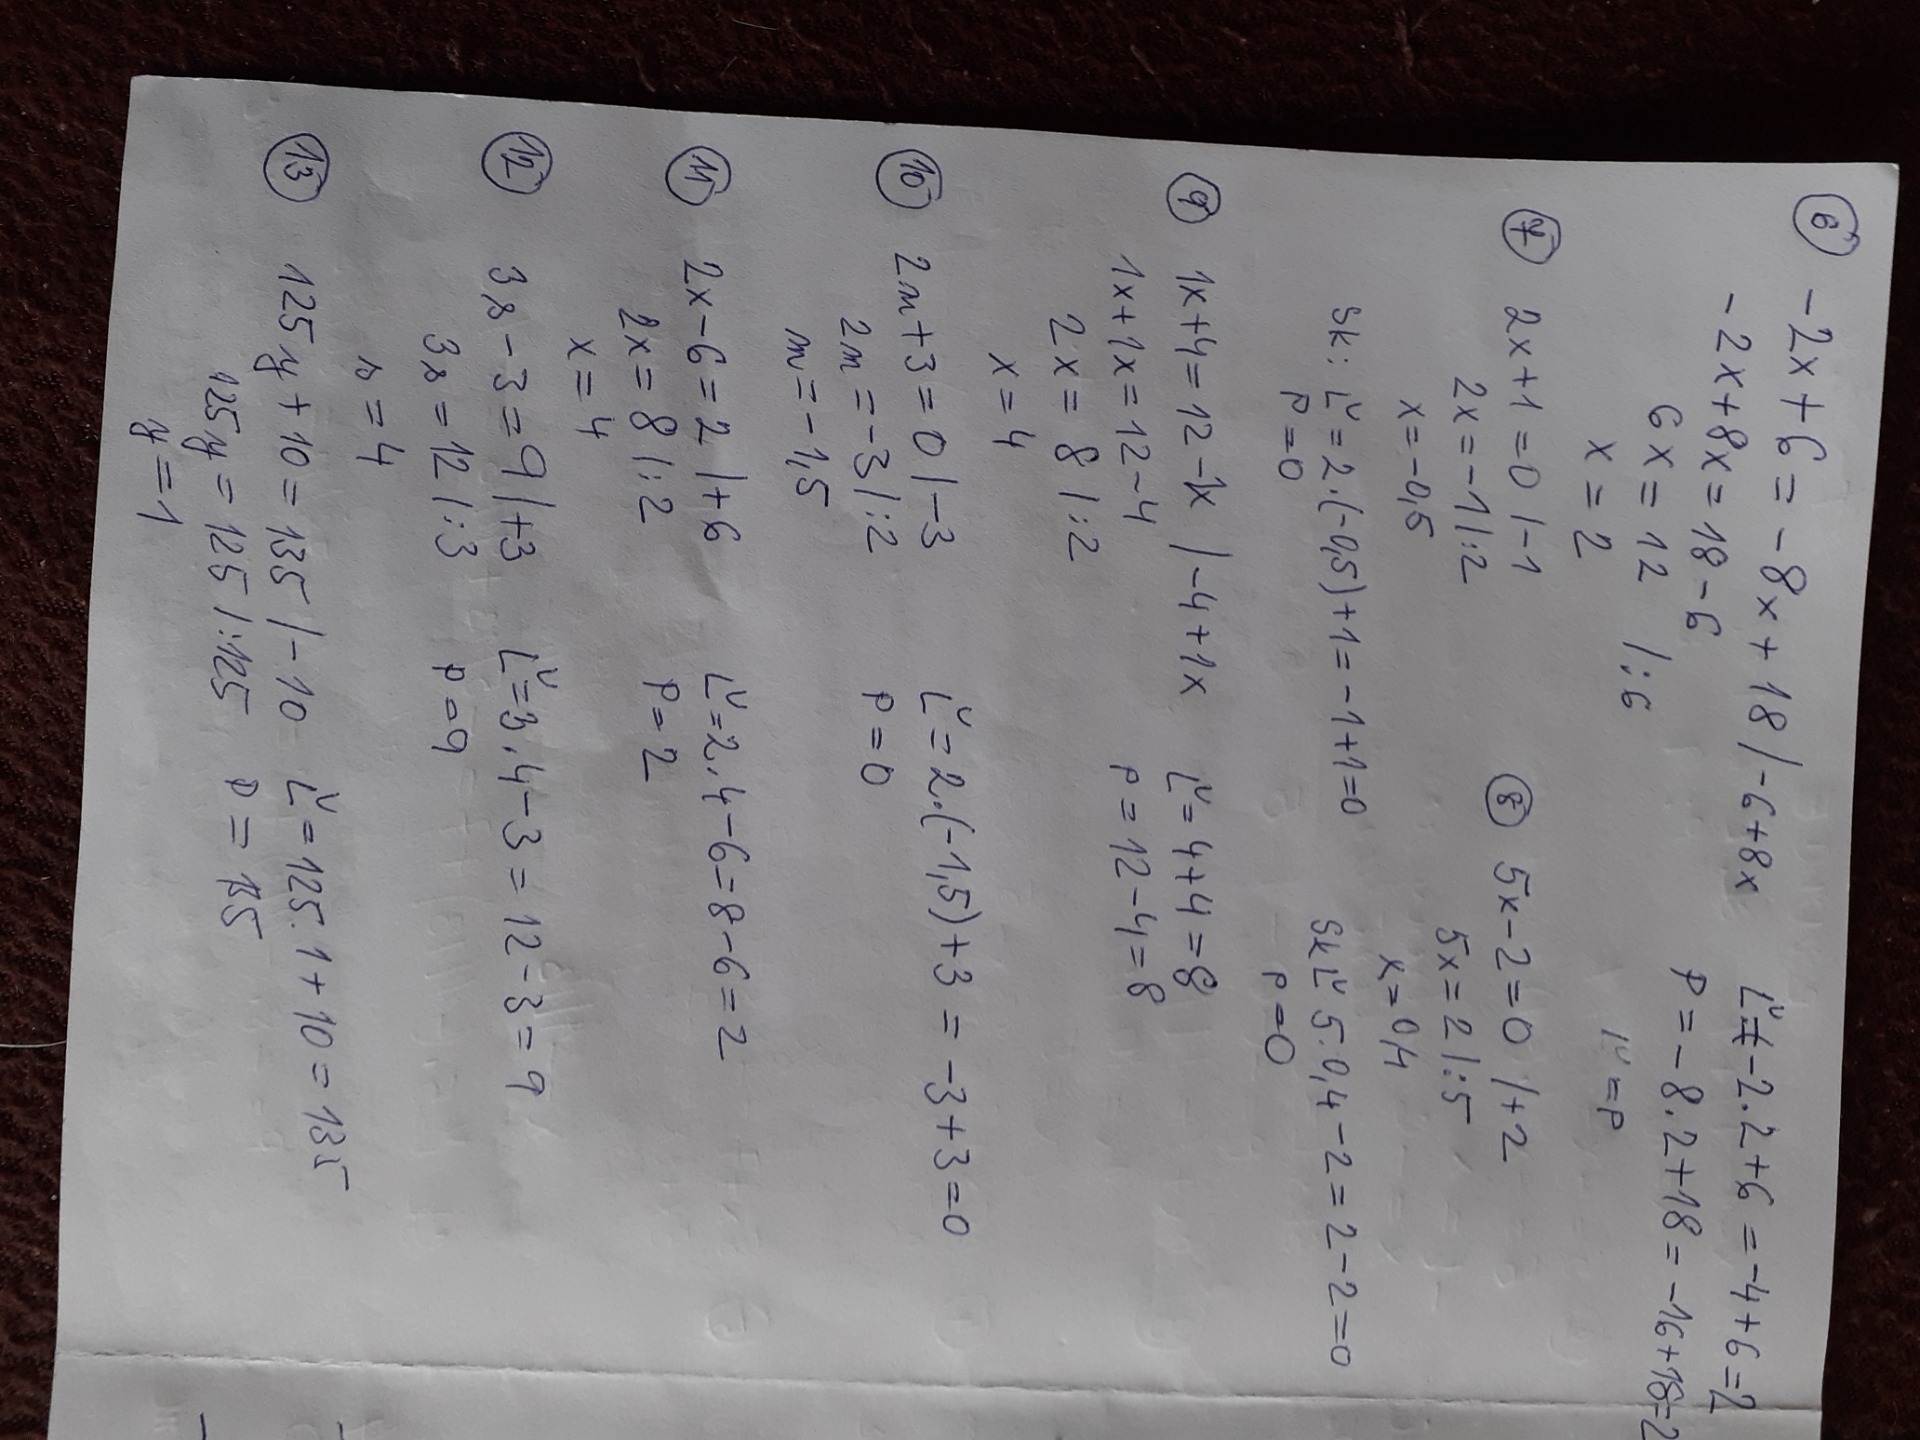 ⑥ -2x + 6 = -8x + 18 /-6+8x
-2x + 8x = 18 - 6
6x = 12 /:6
x = 2
Ľ = -2.2+6 = -4+6=2
P = -8.2+18 = -16+18=2
Ľ = P
⑦ 2x+1=0 /-1
2x = -1 /:2
x = -0,5
Sk: Ľ = 2.(-0,5)+1 = -1+1=0
P = 0
⑧ 5x-2=0 /+2
5x = 2 /:5
x = 0,4
Sk Ľ 5.0,4-2 = 2-2=0
P = 0
⑨ 1x+4 = 12-1x /-4+1x
1x+1x = 12-4
2x = 8 /:2
x = 4
Ľ = 4+4 = 8
P = 12-4 = 8
⑩ 2m+3 = 0 /-3
2m = -3 /:2
m = -1,5
Ľ = 2.(-1,5)+3 = -3+3=0
P = 0
⑪ 2x-6 = 2 /+6
2x = 8 /:2
x = 4
Ľ = 2.4-6 = 8-6 = 2
P = 2
⑫ 3s-3 = 9 /+3
3s = 12 /:3
s = 4
Ľ = 3.4-3 = 12-3 = 9
P = 9
⑬ 125y+10 = 135 /-10
125y = 125 /:125
y = 1
Ľ = 125.1+10 = 135
P =